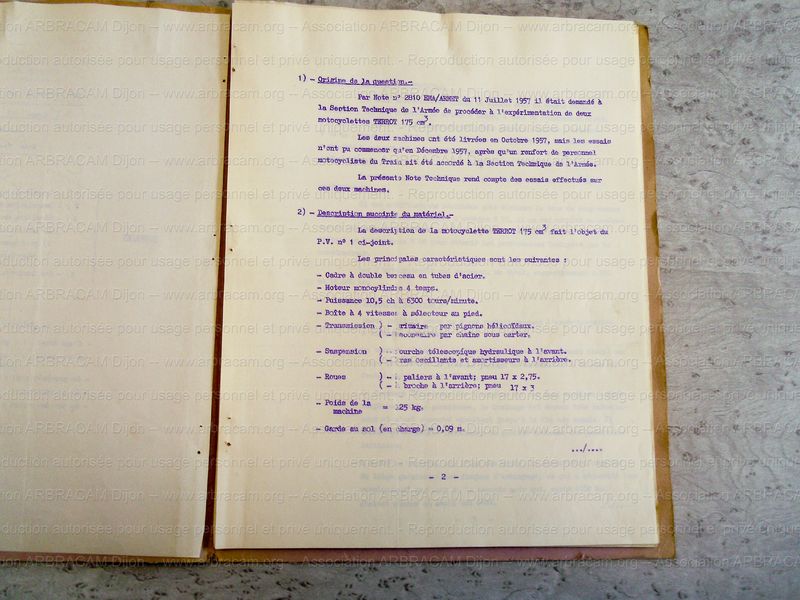 1) - Origine de la question.-
Par Note n° 2810 EMA/ARMET du 11 Juillet 1957 il était demandé à
la Section Technique de l'Armée de procéder à l'expérimentation de deux
motocyclettes TERROT 175 cm3.
Les deux machines ont été livrées en Octobre 1957, mais les essais
n'ont pu commencer qu'en Décembre 1957, après qu'un renfort de personnel
motocycliste du Train ait été accordé à la Section Technique de l'Armée.
La présente Note Technique rend compte des essais effectués sur
ces deux machines.
2) - Description succinte du matériel.-
La description de la motocyclette TERROT 175 cm3 fait l'objet du
P.V. n° 1 ci-joint.
Les principales caractéristiques sont les suivantes :
- Cadre à double berceau en tubes d'acier.
- Moteur monocylindre 4 temps.
- Puissance 10,5 ch à 6300 tours/minute.
- Boîte à 4 vitesses à sélecteur au pied.
- Transmission ) - primaire par pignons hélicoïdaux.
( - secondaire par chaîne sous carter.
- Suspension ) - fourche télescopique hydraulique à l'avant.
( - bras oscillants et amortisseurs à l'arrière.
- Roues ) - paliers à l'avant; pneu 17 x 2,75.
( - broche à l'arrière; pneu 17 x 3
- Poids de la
machine = 125 kg.
- Garde au sol (en charge) = 0,09 m.
.../....
- 2 -
Association ARBRACAM Dijon -- www.arbracam.org
Reproduction autorisée pour usage personnel et privé uniquement.